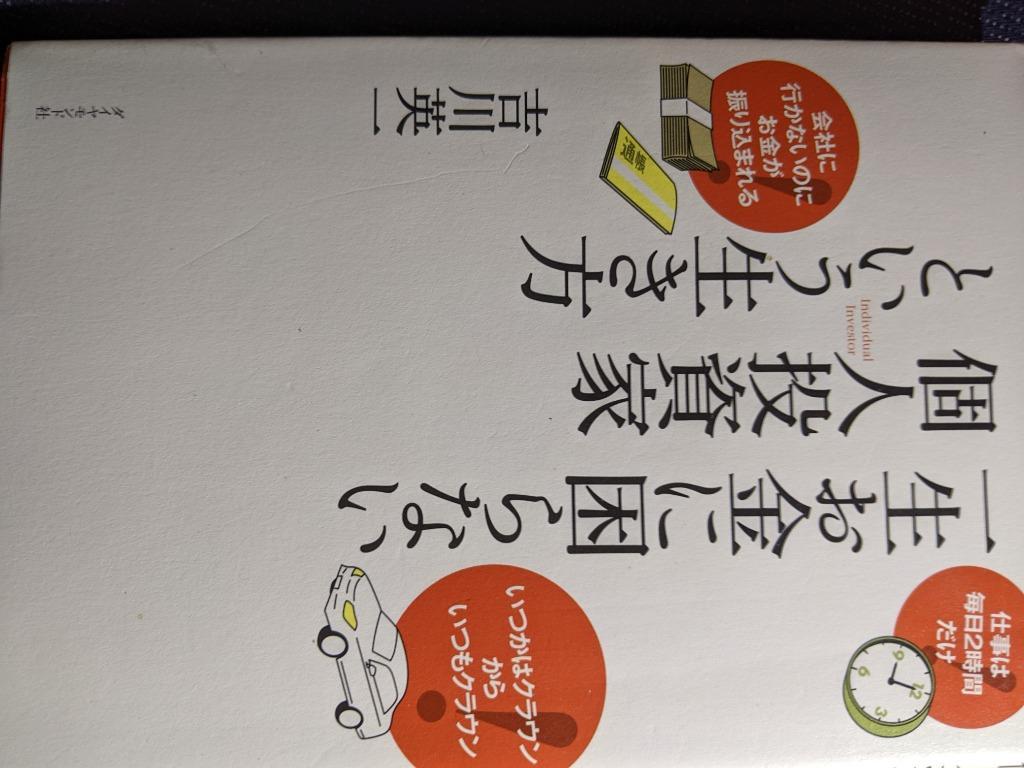 仕事は
毎日2時間
だけ
12
3
6
9
一生お金に困らない
個人投資家
Individual
Investor
という生き方
会社に
行かないのに
お金が
振り込まれる
通帳
いつかはクラウン
から
いつもクラウン
吉川英一
ダイヤモンド社